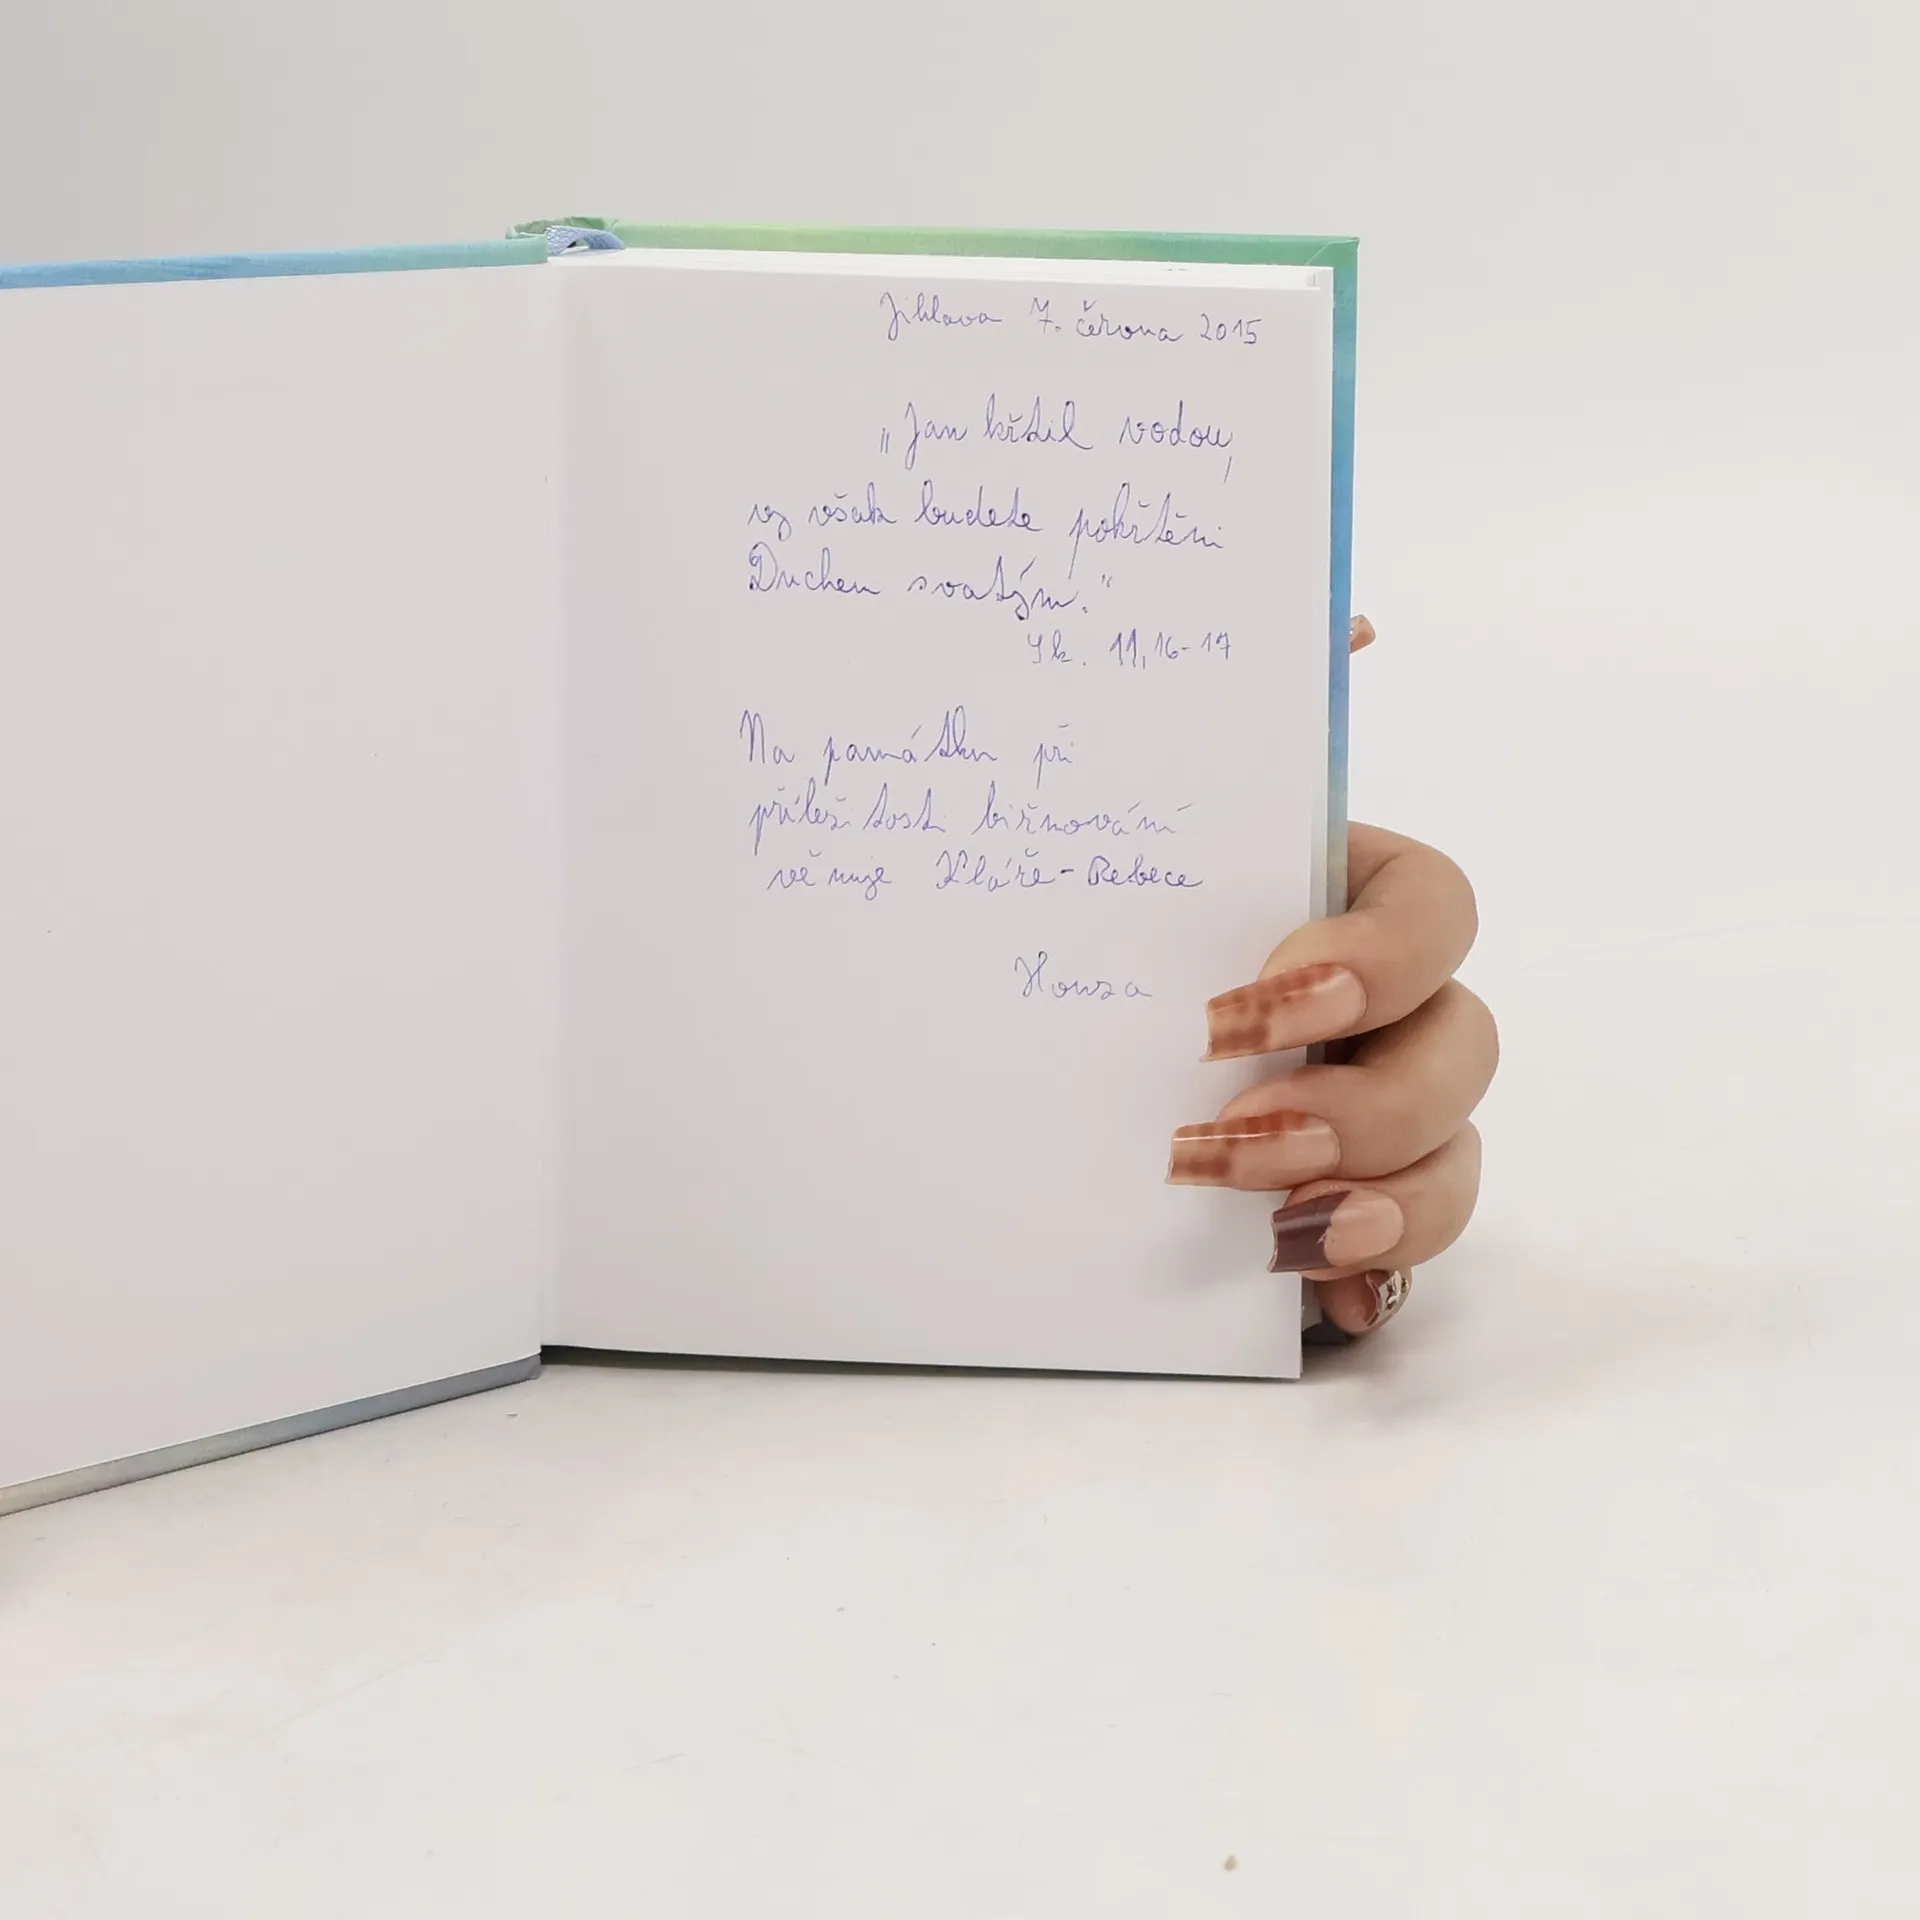 Jihlava 7. června 2015
„Jan křtil vodou,
vy však budete pokřtěni
Duchem svatým."
Sk. 11,16-17
Na památku při
příležitosti biřmování
věnuje Kláře-Rebece
Honza